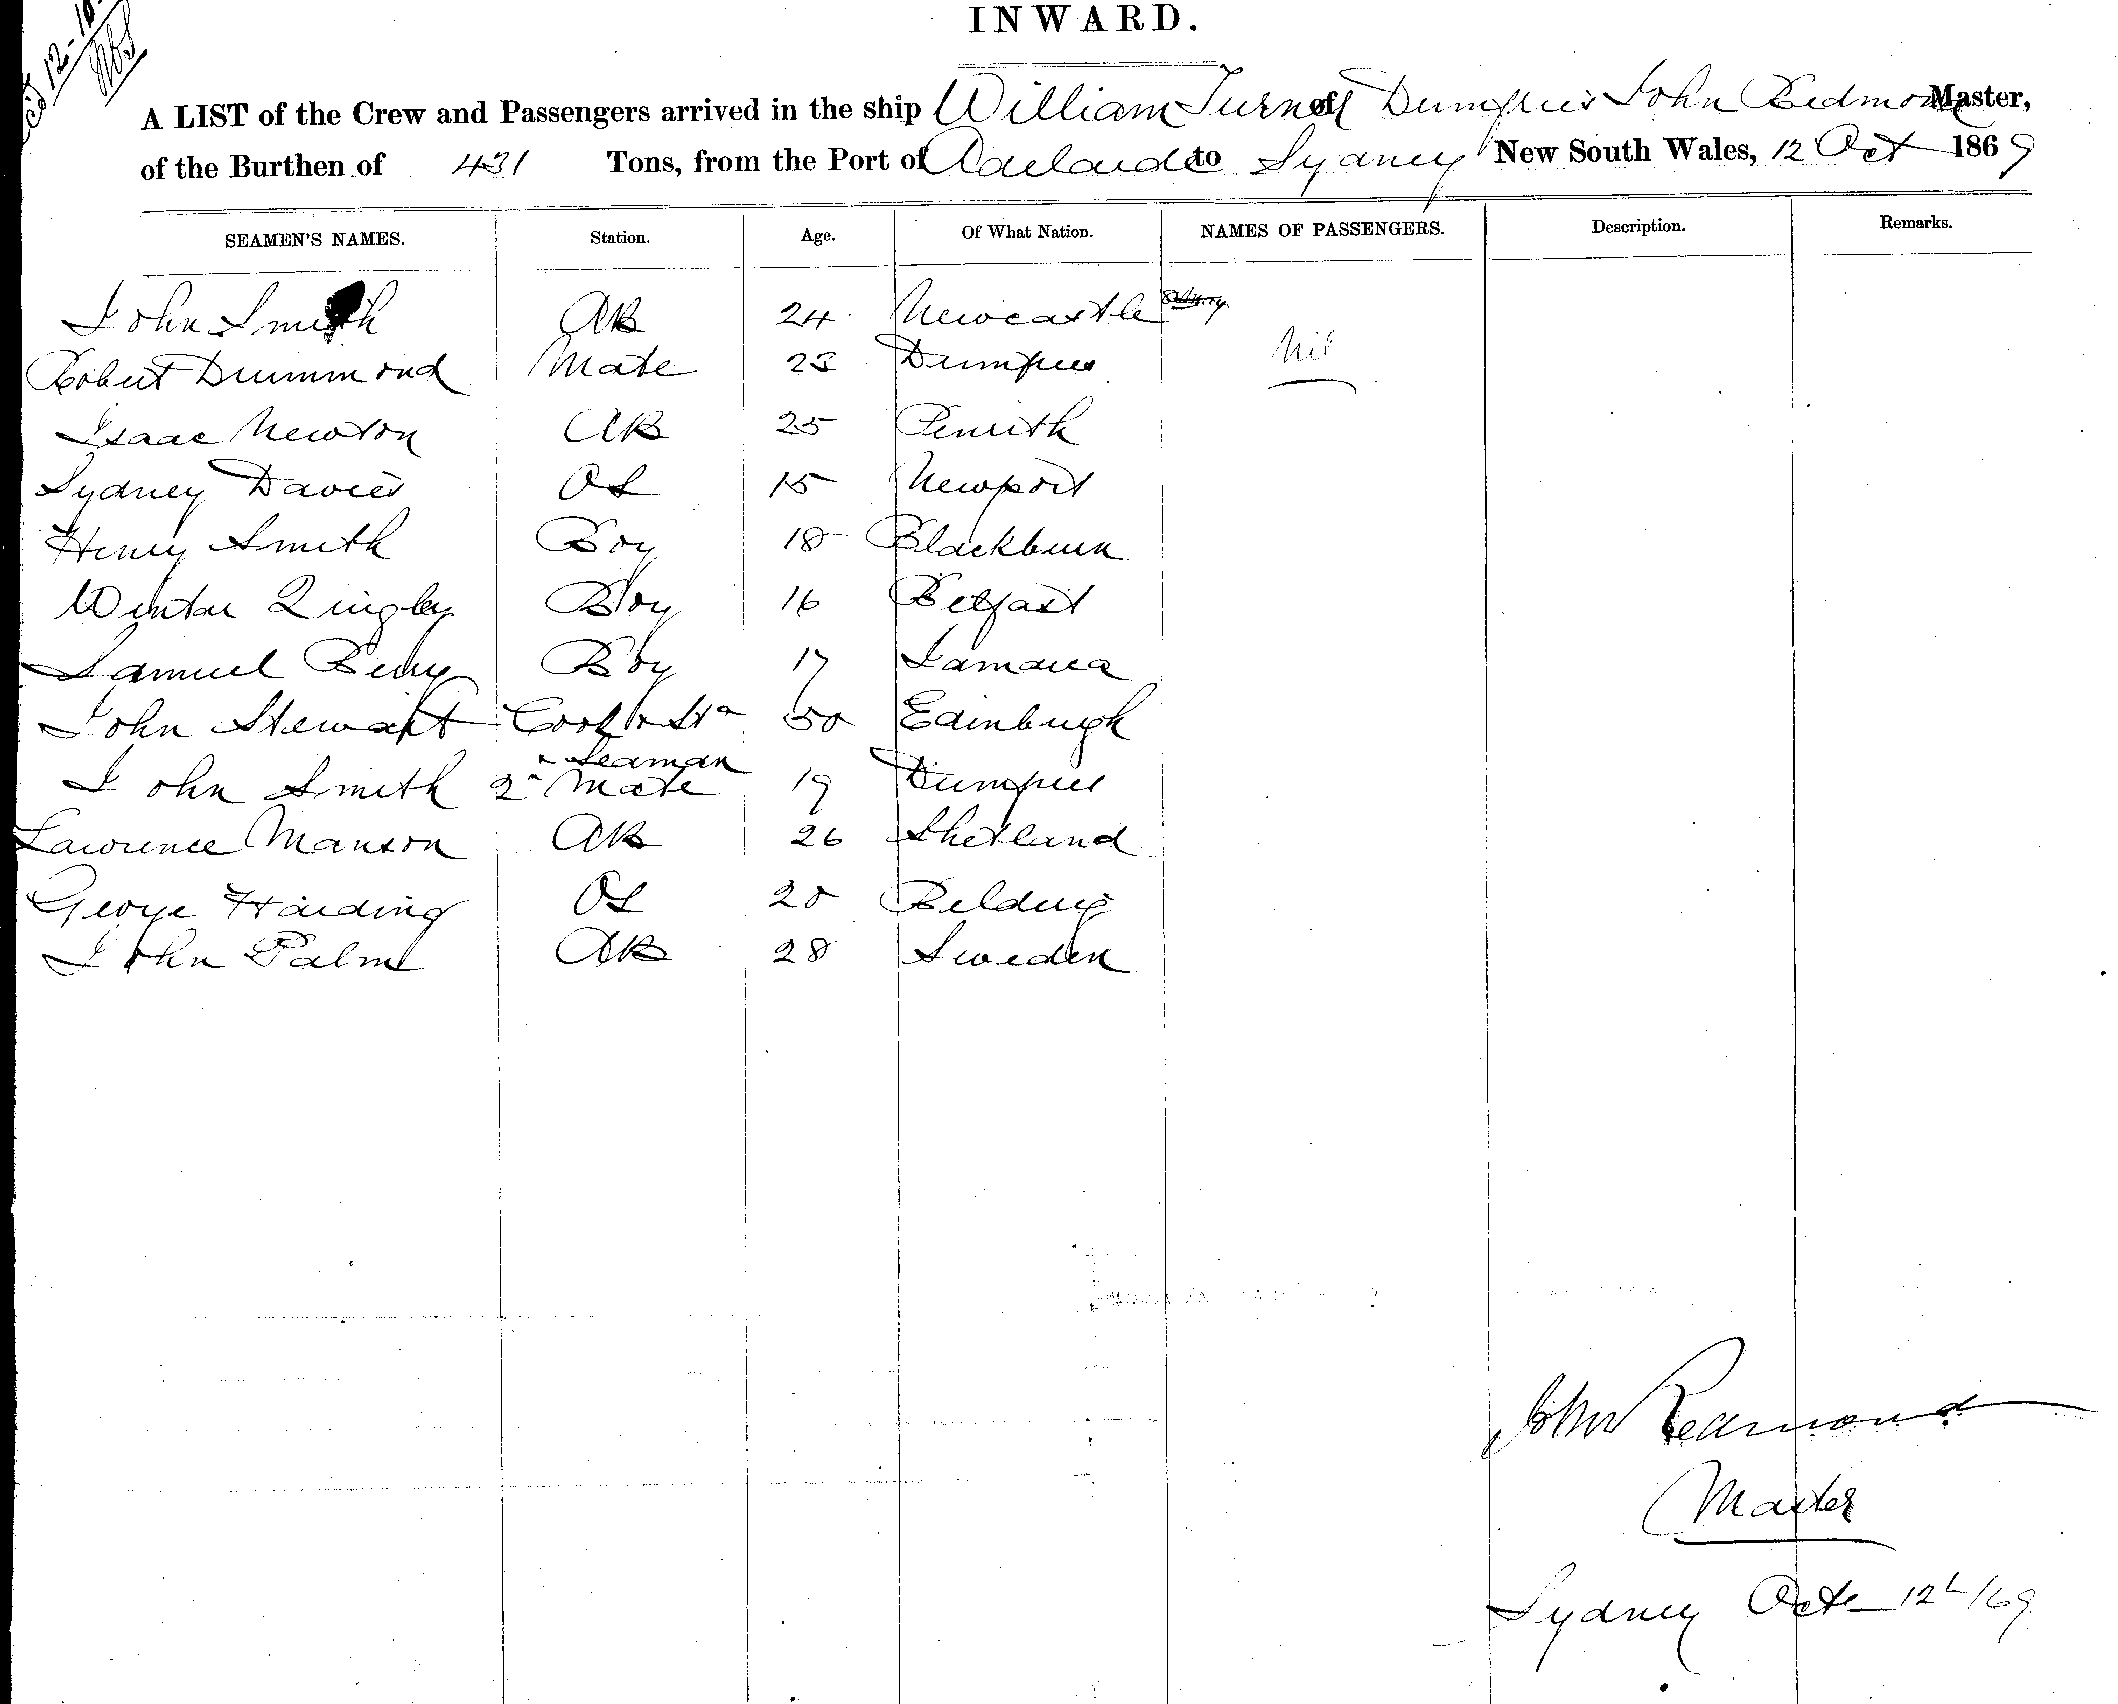 12-10
INWARD.
A LIST of the Crew and Passengers arrived in the ship William Turner of Dumfries John Redmond Master,
of the Burthen of 431 Tons, from the Port of Adelaide to Sydney New South Wales, 12 Oct 1869
SEAMEN'S NAMES. Station. Age. Of What Nation. NAMES OF PASSENGERS. Description. Remarks.
John Smith AB 24 Newcastle
Nil
Robert Drummond Mate 23 Dumfries
Isaac Newton AB 25 Penrith
Sydney Davies OS 15 Newport
Henry Smith Boy 18 Blackburn
Winter Boy 16 Belfast
Samuel Berry Boy 17 Jamaica
John Stewart Cook & Std 50 Edinburgh
& Seaman
John Smith 2d Mate 19 Dumfries
Lawrence Manson AB 26 Shetland
George Harding OS 20
John Palm AB 28 Sweden
John Redmond
Master
Sydney Oct 12th/69